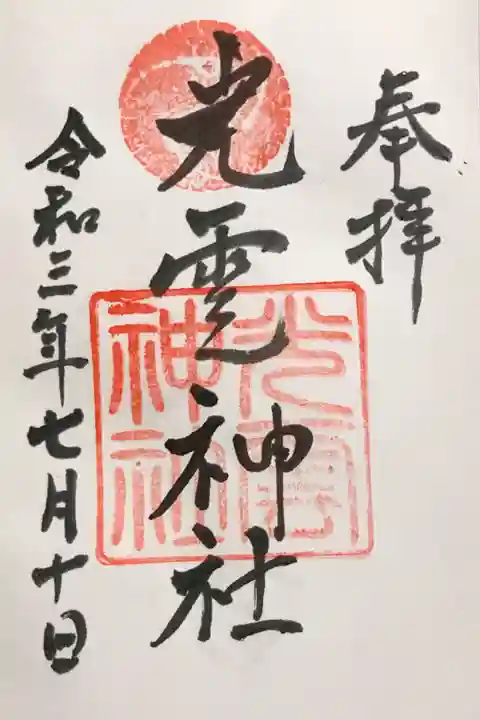 奉拝
光雲神社
令和三年七月十日
光雲
神社